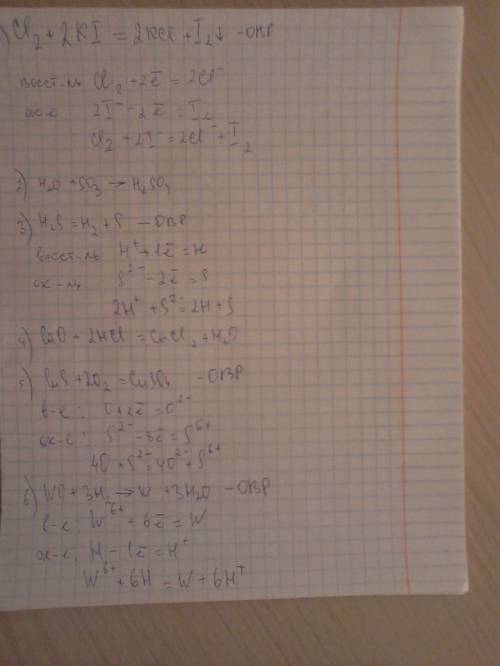 1) Cl₂ + 2KI = 2KCl + I₂↓ - ОВР
восст-ль Cl₂ + 2ē = 2Cl⁻
ок-е 2I⁻ - 2ē = I₂
Cl₂ + 2I⁻ = 2Cl⁻ + I₂
2) H₂O + SO₃ → H₂SO₄
3) H₂S = H₂ + S - ОВР
восст-ль H⁺ + 1ē = H
ок-ль S²⁻ - 2ē = S
2H⁺ + S²⁻ = 2H + S
4) CuO + 2HCl = CuCl₂ + H₂O
5) CuS + 2O₂ = CuSO₄ - ОВР
в-е: O + 2ē = O²⁻
ок-е: S²⁻ - 8ē = S⁶⁺
4O + S²⁻ = 4O²⁻ + S⁶⁺
6) WO + 3H₂ → W + 3H₂O - ОВР
в-е: W⁶⁺ + 6ē = W
ок-е: H - 1ē = H⁺
W⁶⁺ + 6H = W + 6H⁺